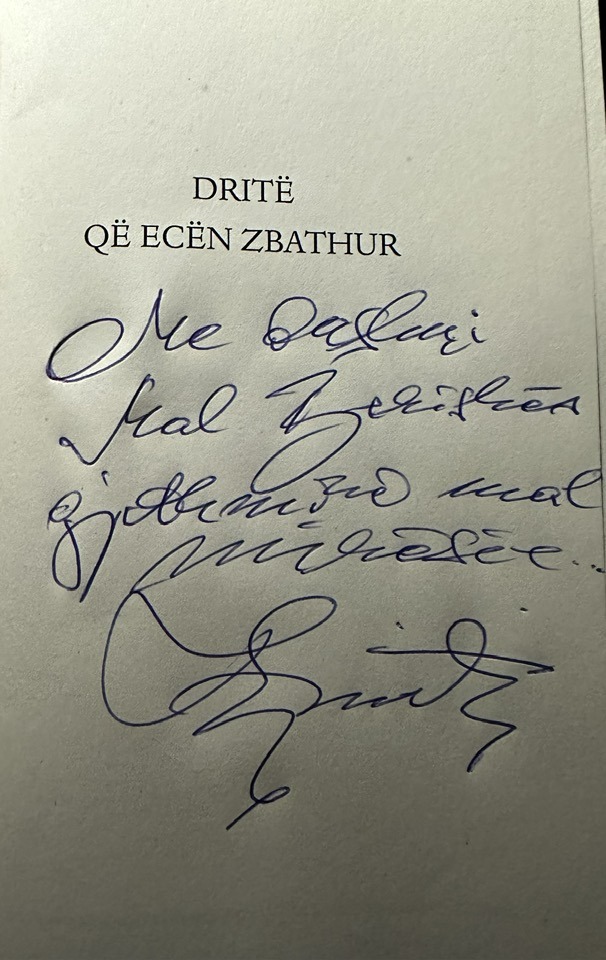 DRITË
QË ECËN ZBATHUR
Me dashuri
Mal Berishës
gjithmonë mal
mirësie...